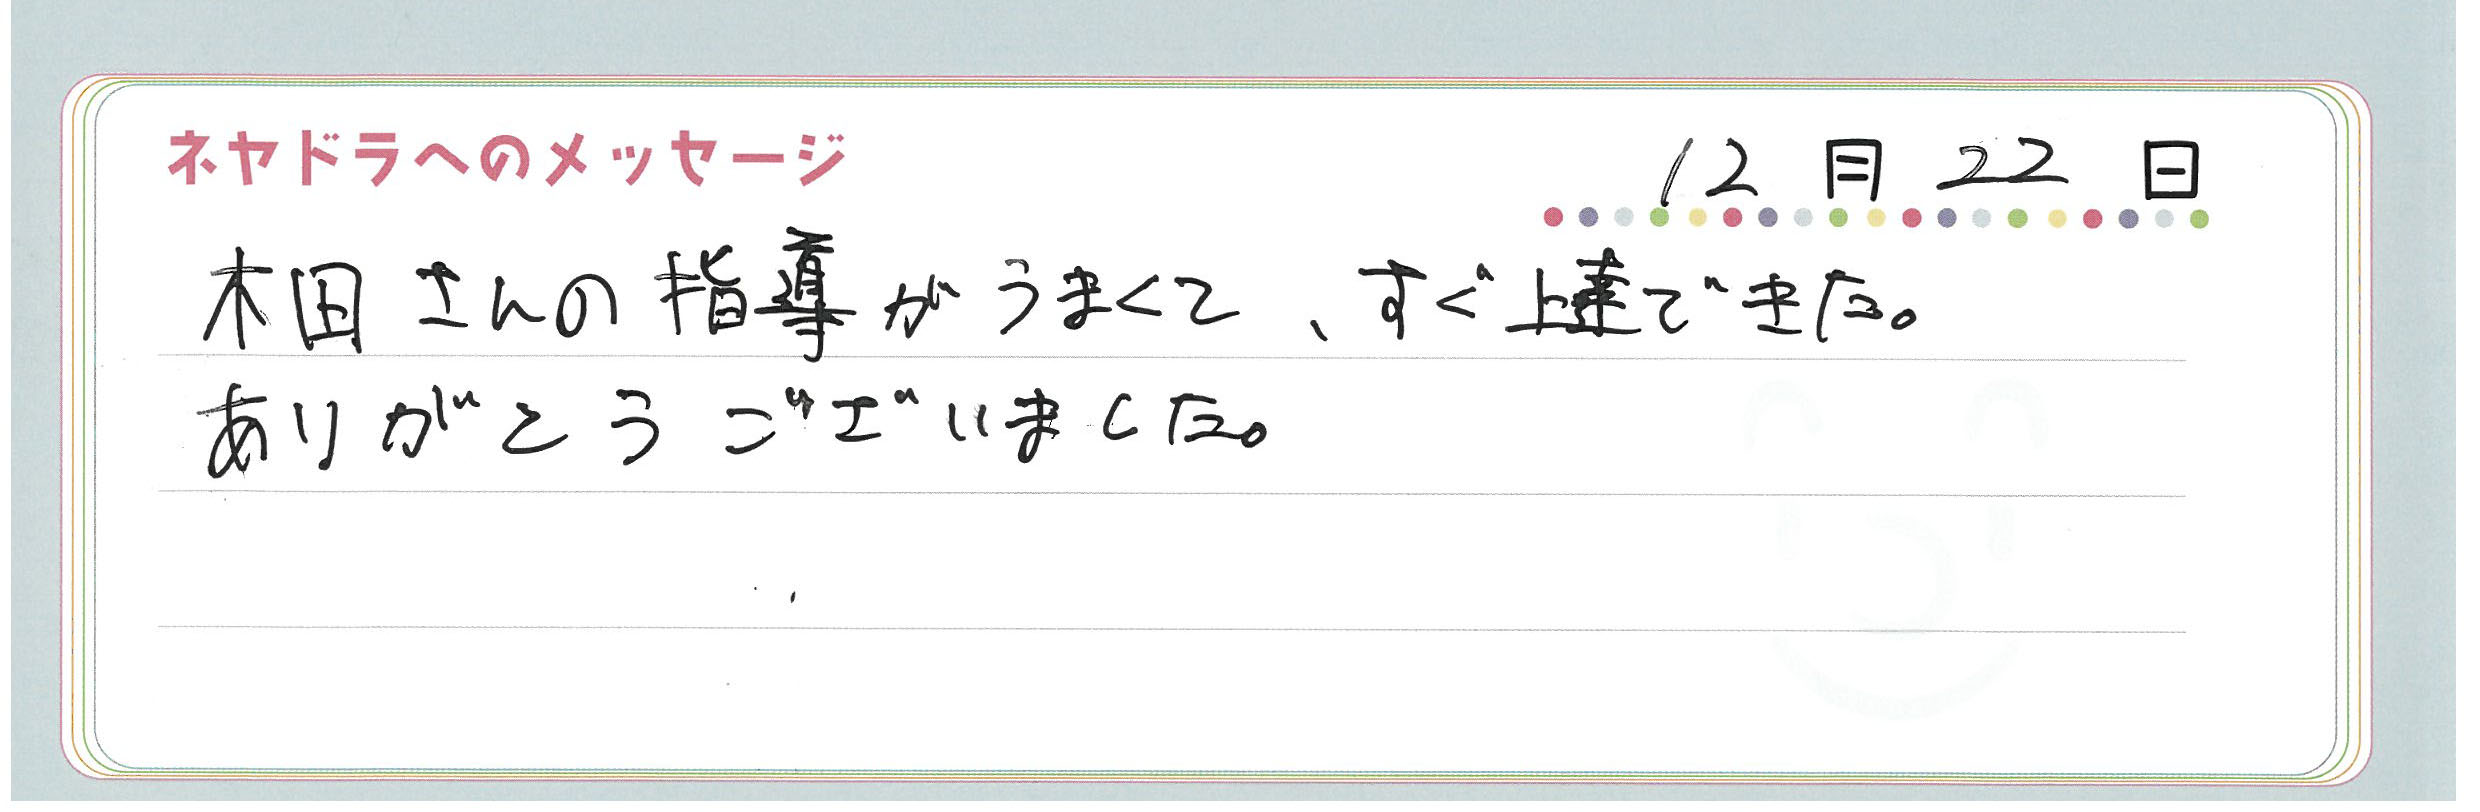 ネヤドラへのメッセージ
12月22日
木田さんの指導がうまくて、すぐ上達できた。
ありがとうございました。